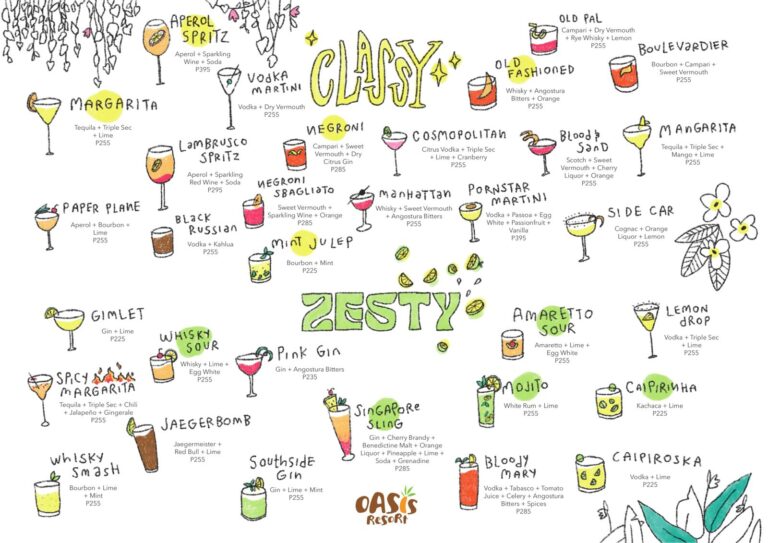 CLASSY
APEROL
SPRITZ
Aperol + Sparkling
Wine + Soda
P395
VODKA
MARTINI
Vodka + Dry Vermouth
P255
OLD PAL
Campari + Dry Vermouth
+ Rye Whisky + Lemon
P255
BOULEVARDIER
Bourbon + Campari +
Sweet Vermouth
P255
OLD
FASHIONED
Whisky + Angostura
Bitters + Orange
P255
MARGARITA
Tequila + Triple Sec
+ Lime
P255
LAMBRUSCO
SPRITZ
Aperol + Sparkling
Red Wine + Soda
P295
NEGRONI
Campari + Sweet
Vermouth + Dry
Citrus Gin
P285
COSMOPOLITAN
Citrus Vodka + Triple Sec
+ Lime + Cranberry
P255
BLOOD &
SAND
Scotch + Sweet
Vermouth + Cherry
Liquor + Orange
P255
MANGARITA
Tequila + Triple Sec +
Mango + Lime
P255
PAPER PLANE
Aperol + Bourbon +
Lime
P255
BLACK
RUSSIAN
Vodka + Kahlua
P255
NEGRONI
SBAGLIATO
Sweet Vermouth +
Sparkling Wine + Orange
P285
MANHATTAN
Whisky + Sweet Vermouth
+ Angostura Bitters
P255
PORNSTAR
MARTINI
Vodka + Passoa + Egg
White + Passionfruit +
Vanilla
P395
SIDE CAR
Cognac + Orange
Liquor + Lemon
P255
MINT JULEP
Bourbon + Mint
P225
ZESTY
GIMLET
Gin + Lime
P225
WHISKY
SOUR
Whisky + Lime +
Egg White
P255
PINK GIN
Gin + Angostura Bitters
P235
AMARETTO
SOUR
Amaretto + Lime +
Egg White
P255
LEMON
DROP
Vodka + Triple Sec
+ Lime
P255
SPICY
MARGARITA
Tequila + Triple Sec + Chili
+ Jalapeño + Gingerale
P255
JAEGERBOMB
Jaegermeister +
Red Bull + Lime
P255
SINGAPORE
SLING
Gin + Cherry Brandy +
Benedictine Malt + Orange
Liquor + Pineapple + Lime +
Soda + Grenadine
P285
MOJITO
White Rum + Lime
P255
CAIPIRINHA
Kachaca + Lime
P225
WHISKY
SMASH
Bourbon + Lime
+ Mint
P255
SOUTHSIDE
GIN
Gin + Lime + Mint
P255
BLOODY
MARY
Vodka + Tabasco + Tomato
Juice + Celery + Angostura
Bitters + Spices
P285
CAIPIROSKA
Vodka + Lime
P225
OASIS
RESORT